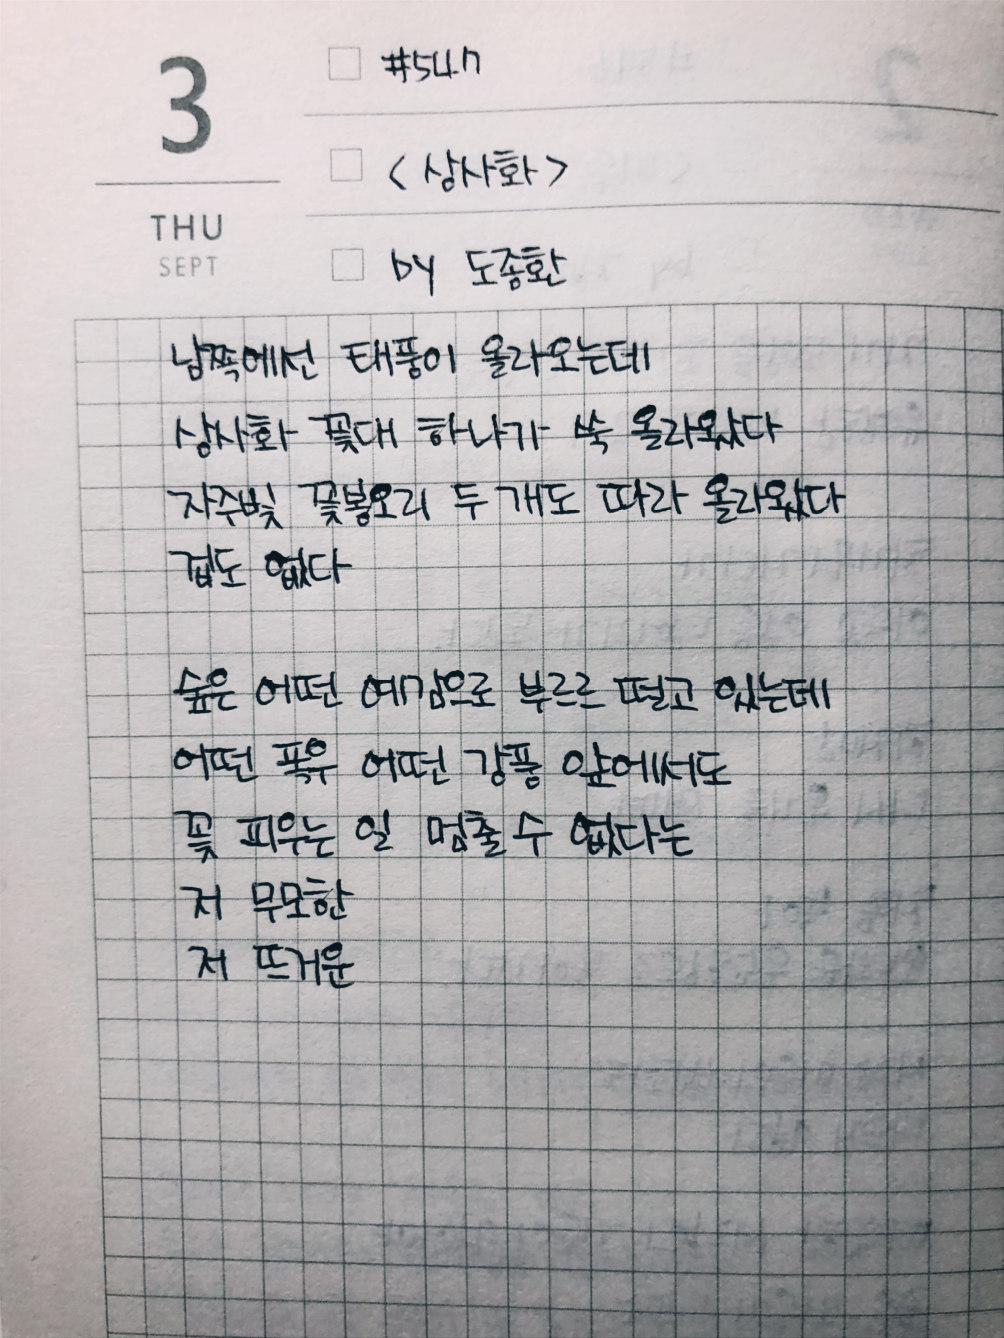 3
THU
SEPT
#547
<상사화>
by 도종환
남쪽에선 태풍이 올라오는데
상사화 꽃대 하나가 쑥 올라왔다
자주빛 꽃봉오리 두 개도 따라 올라왔다
겁도 없다
숲은 어떤 예감으로 부르르 떨고 있는데
어떤 폭우 어떤 강풍 앞에서도
꽃 피우는 일 멈출 수 없다는
저 무모한
저 뜨거운